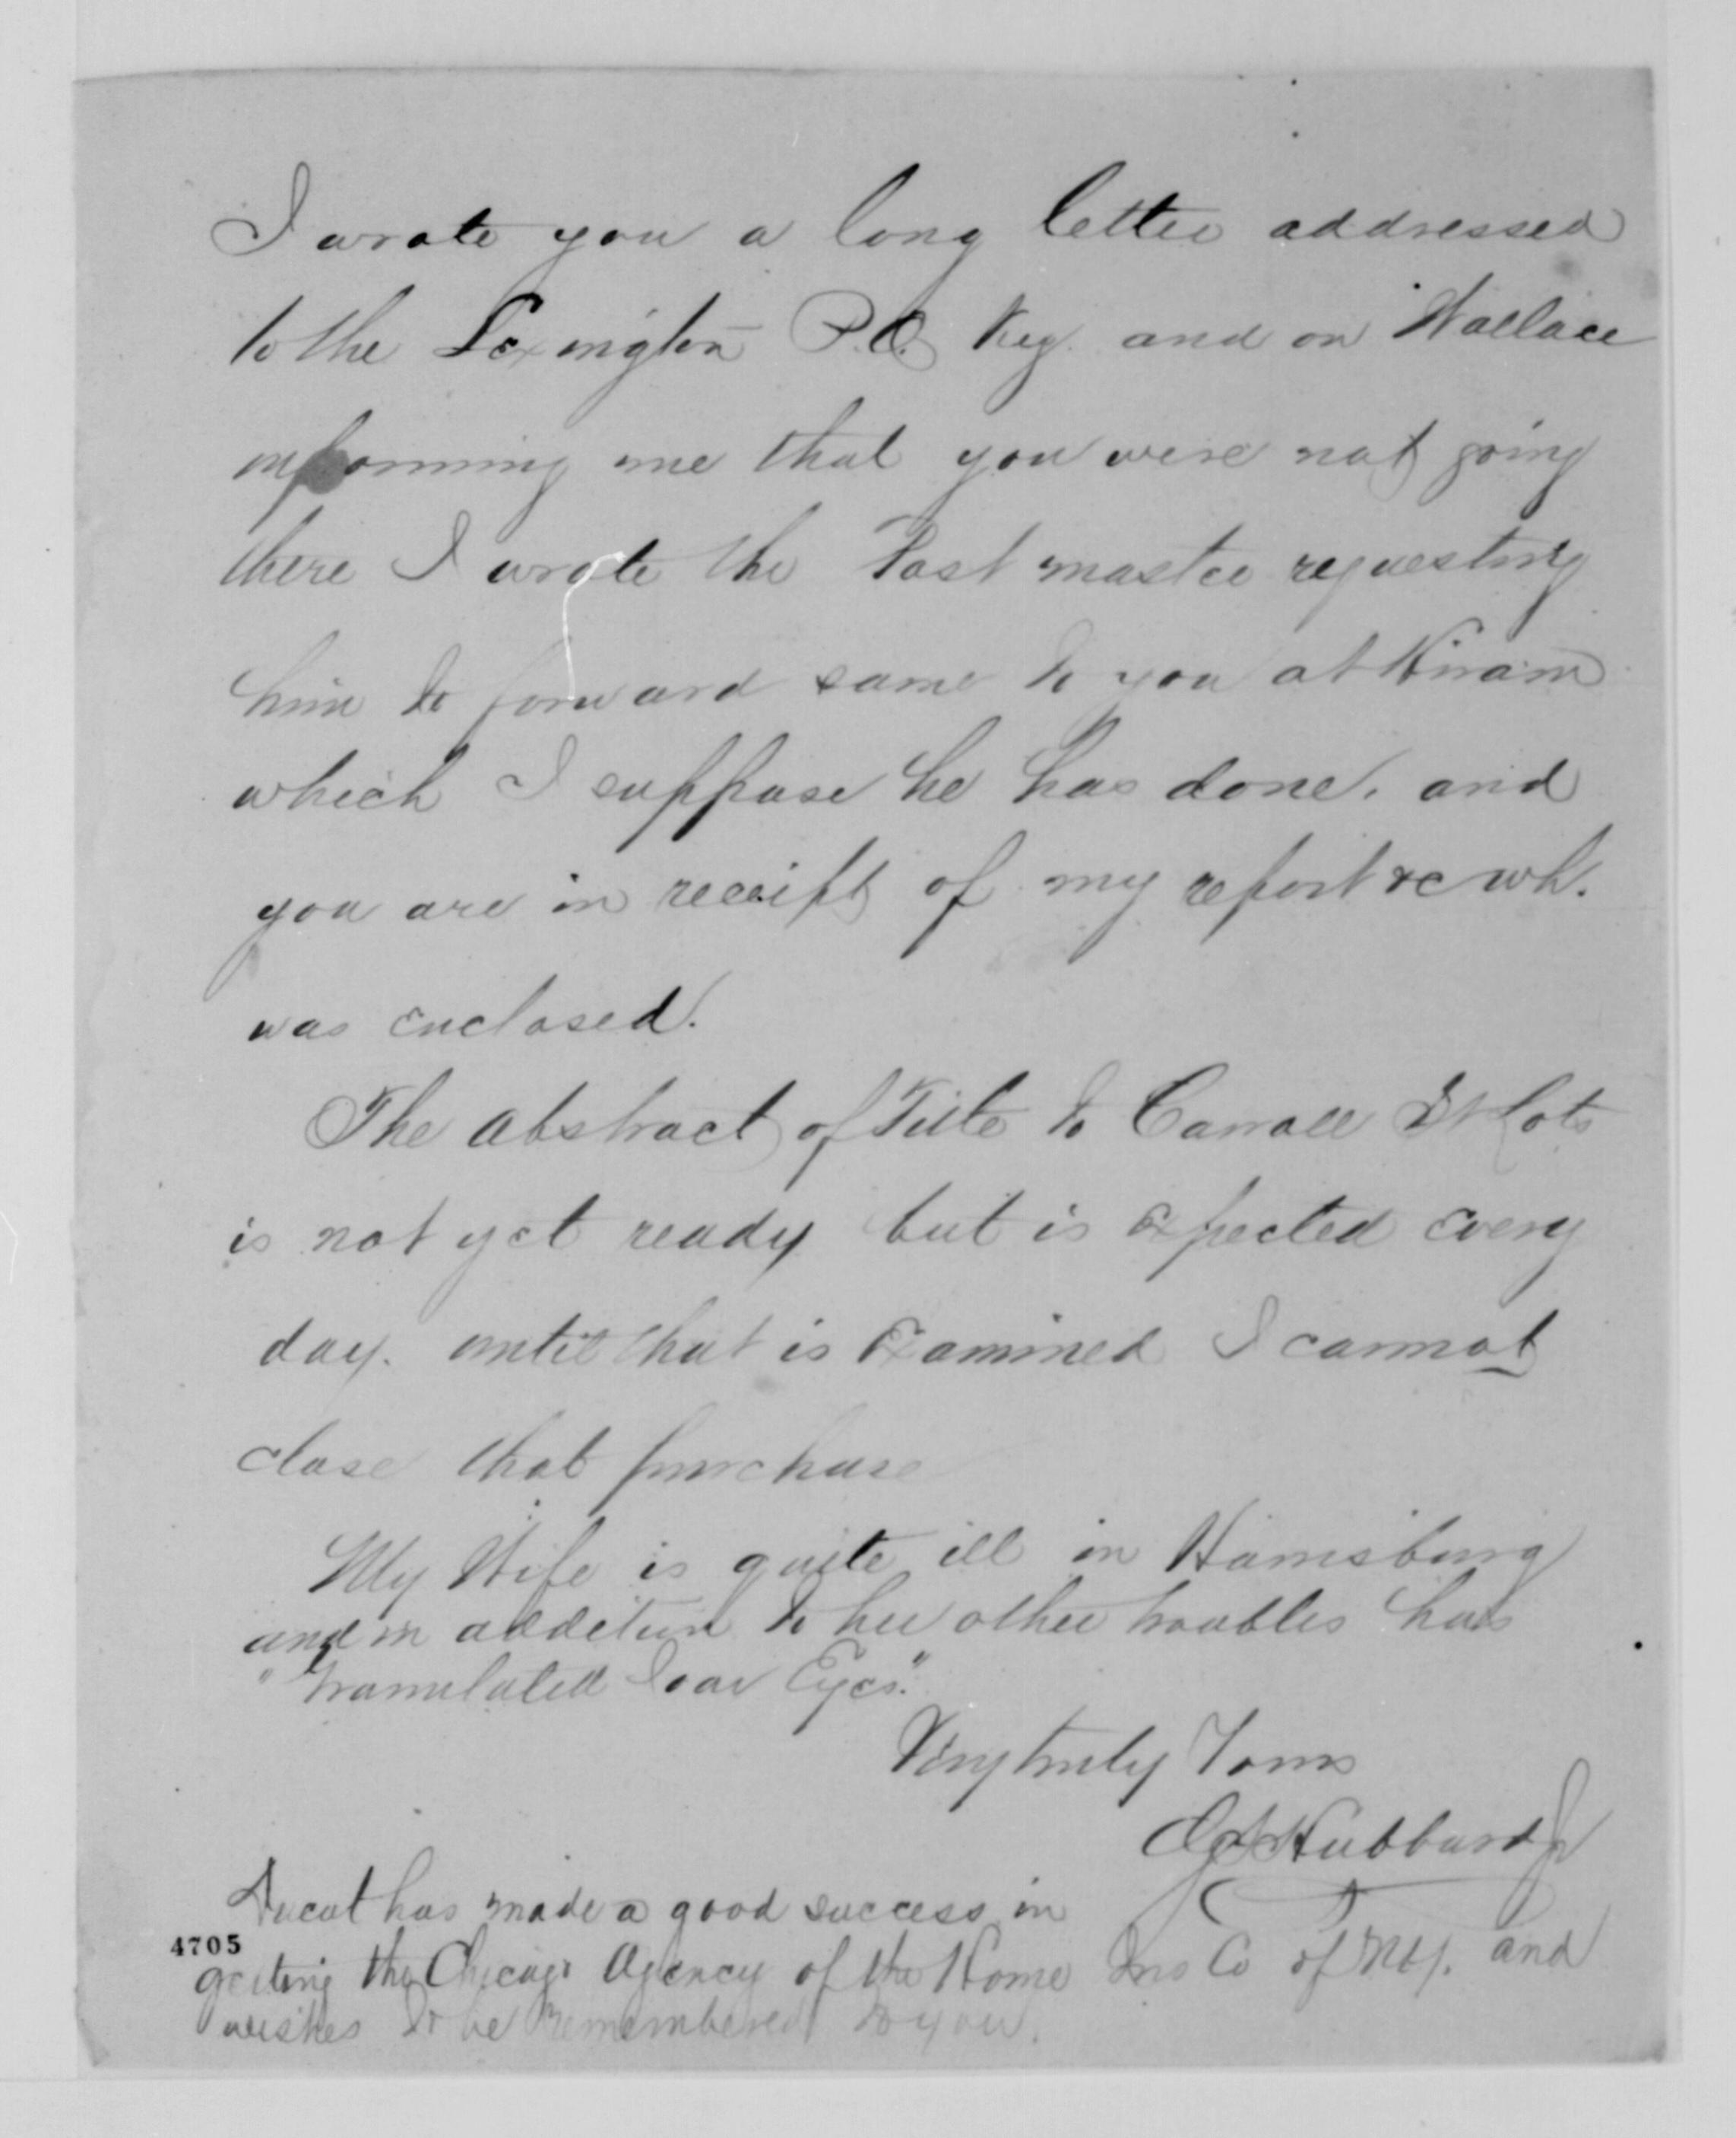 I wrote you a long letter addressed
to the Lexington P.O. Key. and on Wallace
informing me that you were not going
there I wrote the Post master requesting
him to forward same to you at Hiram
which I suppose he has done. and
you are in receipt of my report &c wh.
was enclosed.
The Abstract of Title to Carroll St Lots
is not yet ready but is expected every
day. until that is Examined I cannot
close that purchase
My Wife is quite ill in Harrisburg
and in addition to her other troubles has
"Granulated Sore Eyes".
Very truly Yours
Hubbard Jr
Ducat has made a good success in
4705
getting the Chicago Agency of the Home Ins Co of N.Y. and
wishes to be remembered to you.